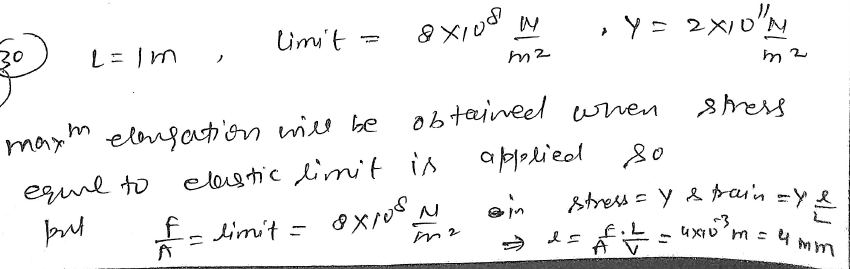 30 L = 1m , limit = 8×10⁸ N/m² , Y = 2×10¹¹ N/m²
maxᵐ elongation will be obtained when stress
equal to elastic limit is applied so
put F/A = limit = 8×10⁸ N/m² in stress = Y strain = Y l/L
⇒ l = F/A · L/Y = 4×10⁻³ m = 4 mm